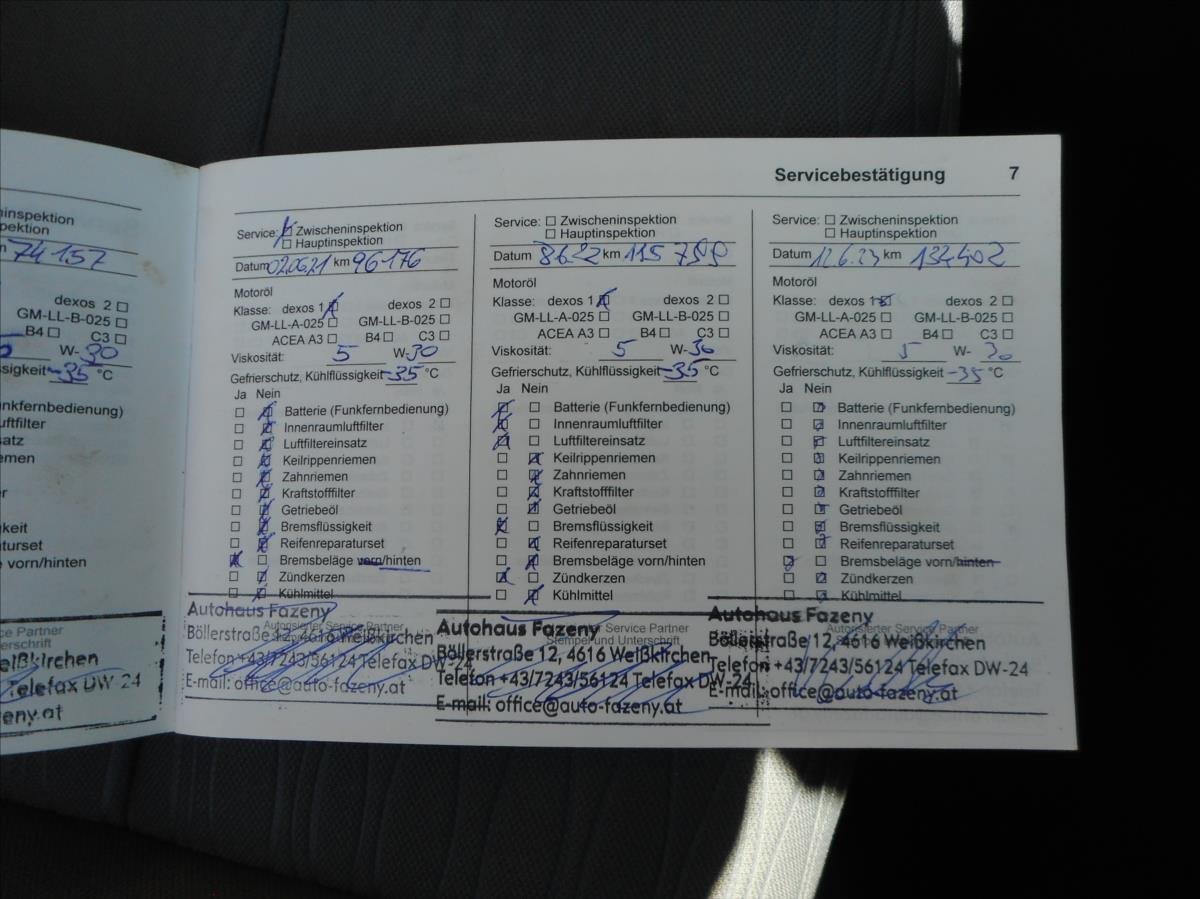 Servicebestätigung 7
ninspektion
pektion
74 157
dexos 2
GM-LL-B-025
B4 C3
W-30
ssigkeit -35 °C
nkfernbedienung)
uftfilter
satz
emen
er
keit
aturset
e vorn/hinten
ce Partner
erschrift
eißkirchen
Telefax DW-24
zeny.at
Service: Zwischeninspektion
Hauptinspektion
Datum 02.06.21 km 96 176
Motoröl
Klasse: dexos 1 dexos 2
GM-LL-A-025 GM-LL-B-025
ACEA A3 B4 C3
Viskosität: 5 W-30
Gefrierschutz, Kühlflüssigkeit -35 °C
Ja Nein
Batterie (Funkfernbedienung)
Innenraumluftfilter
Luftfiltereinsatz
Keilrippenriemen
Zahnriemen
Kraftstofffilter
Getriebeöl
Bremsflüssigkeit
Reifenreparaturset
Bremsbeläge vorn/hinten
Zündkerzen
Kühlmittel
Autorisierter Service Partner
Autohaus Fazeny
Böllerstraße 12, 4616 Weißkirchen
Telefon +43/7243/56124 Telefax DW-24
E-mail: office@auto-fazeny.at
Service: Zwischeninspektion
Hauptinspektion
Datum 8.6.22 km 115 799
Motoröl
Klasse: dexos 1 dexos 2
GM-LL-A-025 GM-LL-B-025
ACEA A3 B4 C3
Viskosität: 5 W-30
Gefrierschutz, Kühlflüssigkeit -35 °C
Ja Nein
Batterie (Funkfernbedienung)
Innenraumluftfilter
Luftfiltereinsatz
Keilrippenriemen
Zahnriemen
Kraftstofffilter
Getriebeöl
Bremsflüssigkeit
Reifenreparaturset
Bremsbeläge vorn/hinten
Zündkerzen
Kühlmittel
Autohaus Fazeny
Service Partner
Stempel und Unterschrift
Böllerstraße 12, 4616 Weißkirchen
Telefon +43/7243/56124 Telefax DW-24
E-mail: office@auto-fazeny.at
Service: Zwischeninspektion
Hauptinspektion
Datum 12.6.23 km 134 402
Motoröl
Klasse: dexos 1 dexos 2
GM-LL-A-025 GM-LL-B-025
ACEA A3 B4 C3
Viskosität: 5 W-30
Gefrierschutz, Kühlflüssigkeit -35 °C
Ja Nein
Batterie (Funkfernbedienung)
Innenraumluftfilter
Luftfiltereinsatz
Keilrippenriemen
Zahnriemen
Kraftstofffilter
Getriebeöl
Bremsflüssigkeit
Reifenreparaturset
Bremsbeläge vorn/hinten
Zündkerzen
Kühlmittel
Autohaus Fazeny
Autorisierter Service Partner
Böllerstraße 12, 4616 Weißkirchen
Telefon +43/7243/56124 Telefax DW-24
E-mail: office@auto-fazeny.at